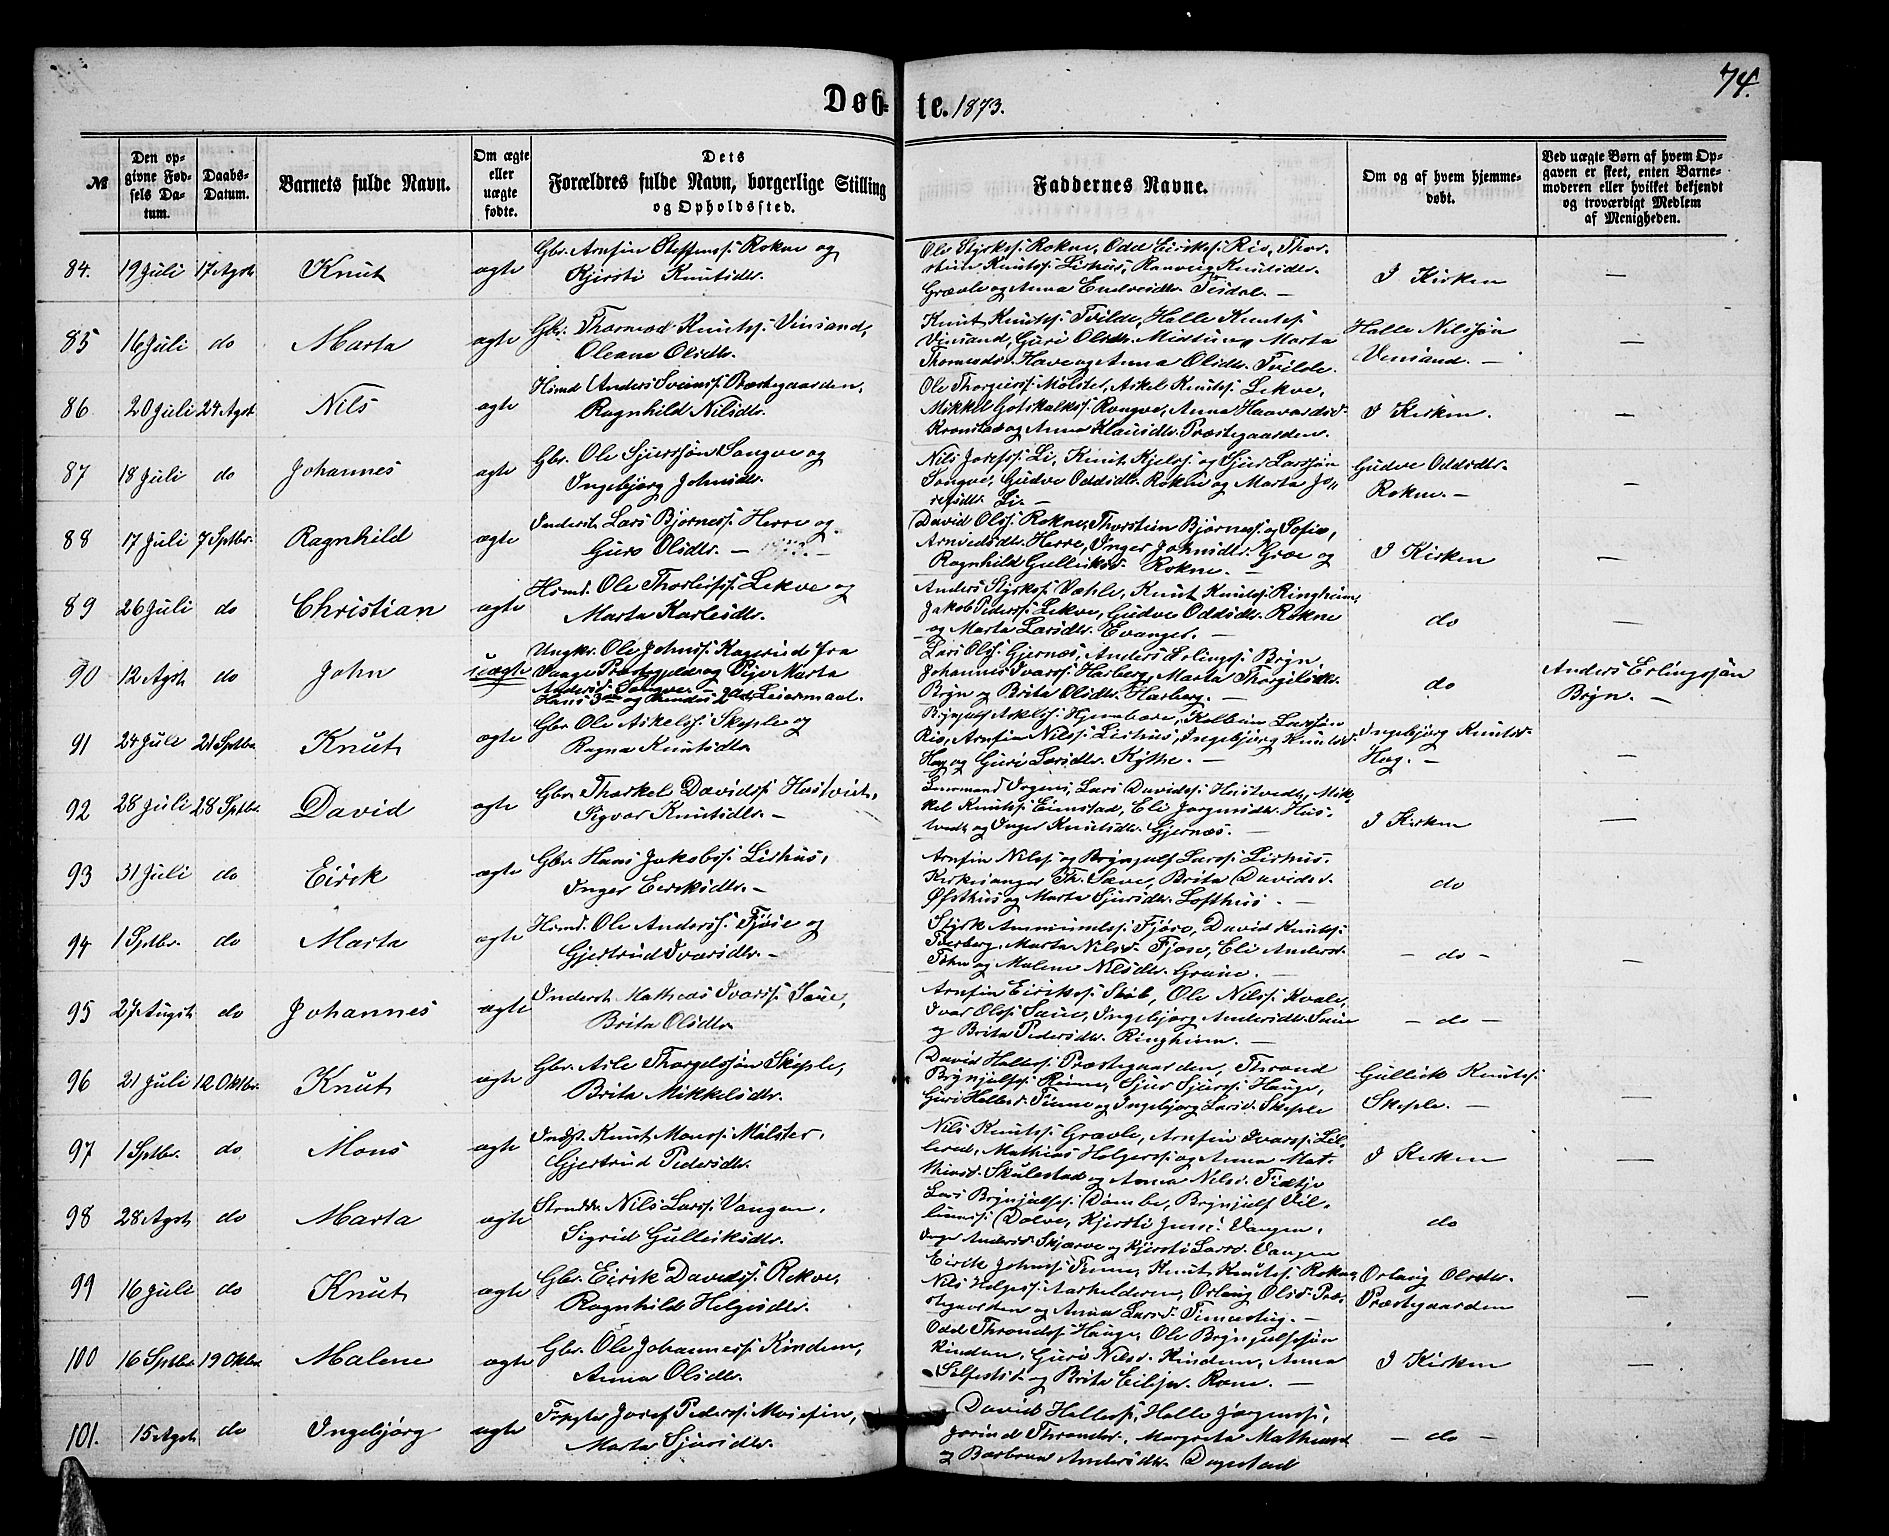 74.
Døbte. 1873.
№
Den opgivne Fødsels Datum.
Daabs-Datum.
Barnets fulde Navn.
Om ægte eller uægte fødte.
Dets Forældres fulde Navn, borgerlige Stilling og Opholdssted.
Faddernes Navne.
Om og af hvem hjemmedøbt.
Ved uægte Børn af hvem Opgaven er skeet, enten Barnemoderen eller hvilket bekjendt og troværdigt Medlem af Menigheden.
84. 19 Juli 17 Agst. Knut ægte
Gbr. Arnfin Steffenss: Rokne og
Kjersti Knutsdtr.
Ole Styrkss: Rokne, Odd Eirikss: Rio, Thor-
stein Knutss: Lirhus, Ranveig Knutsdtr.
Grævle og Anna Endresdtr. Tesdal. —
I Kirken —
85 16 Juli do Marta ægte
Gbr. Thormod Knutss: Vinsand,
Oleane Olsdtr.
Knut Knutss: Tvilde, Halle Knutss:
Vinsand, Guri Olsdtr. Midtun, Marta
Thomasdtr. Have og Anna Olsdtr. Tvilde.
Halle Nilssøn
Vinsand. — —
86 20 Juli 24 Agst Nils ægte
Hsmd. Anders Sveinss: Præstegaarden,
Ragnhild Nilsdtr.
Ole Thorgeirss: Mølster, Askel Knutss: Lekve,
Mikkel Gotskalkss: Rongve, Anna Haavardsd.
Kronstad og Anna Klausdtr. Præstegaarden.
I Kirken. —
87 18 Juli do Johannes ægte
Gbr. Ole Sjurssøn Songve og
Ingebjørg Johnsdtr.
Nils Josefss: Li, Knut Kjelss: og Sjur Larssøn
Songve, Gudve Oddsdtr. Rokne og Marta Jo-
sefsdtr. Li. —
Gudve Oddsdtr.
Rokne. — —
88 17 Juli 7 Sptbr. Ragnhild ægte
Inderst. Lars Bjørness: Herre og
Guro Olsdtr. —
David Olss: Rokne, Thorstein Bjørness: og Sofie,
Arnvedsdtr. Herre, Inger Johnsdtr. Græe og
Ragnhild Gulleiksd. Rokne. —
I Kirken —
89 26 Juli do Christian ægte
Hsmd. Ole Thorleifss: Lekve og
Marta Karlsdtr.
Anders Styrkss: Væhle, Knut Knutss: Ringheim,
Jakob Pederss: Lekve, Gudve Oddsdtr. Rokne
og Marta Larsdtr. Evanger. —
do —
90 12 Agst. do John uægte
Ungkr. Ole Johnss: fra
Vange Præstegjeld og Pige Marta
Andersd. Songve —
Hans 3die og hendes 2det Leiermaal.
Lars Olss: Gjernæs, Anders Erlingss: Bryn,
Johannes Ivarss: Harberg, Marta Thorgilsdtr.
Bryn og Brita Olsdtr. Harberg. —
do
Anders Erlingssøn
Bryn. —
91 24 Juli 21 Sptbr Knut ægte
Gbr. Ole Askelss: Skeple og
Ragna Knutsdtr
Brynjulf Askelss: Kolbein Larssøn
Rio, Arnfin Nilss: Lirhus, Ingebjørg Knutsd.
Hag og Guri Larsdtr. Kythe. —
Ingebjørg Knutsd.
Hag. — —
92 28 Juli 28 Sptbr. David ægte
Gbr. Thorkel Davidss: Hustvedt,
Sigvor Knutsdtr. —
Lensmand Irgens, Lars Davidss: Hustvedt, Mik-
kel Knutss: Eimstad, Eli Jørgensdtr. Hus-
tvedt og Inger Knutsdtr. Gjernæs. —
I Kirken —
93 31 Juli do Eirik ægte
Gbr. Hans Jakobss: Lirhus,
Inger Eiriksdtr. —
Arnfin Nilss og Brynjulf Larss: Lirhus.
Kirkesanger Th. Saue, Brita Davidsd.
Østhus og Marta Sjursdtr. Lofthus. —
do —
94 1 Sptbr. do Marta ægte
Hsmd. Ole Anderss: Fjøse og
Gjertrud Ivarsdtr. —
Styrk Ammundss: Fjøse, David Knutss:
Marta Nilsd. Fjøse, Eli Andersd.
og Malene Nilsdtr. Graue. —
— do — —
95 27 Augst. do Johannes ægte
Inderst. Mathias Ivarss: Saue,
Brita Olsdtr.
Arnfin Eirikss: Ole Nilss: Kvale,
Ivar Olss: Saue, Ingebjørg Andersdtr. Saue
og Brita Pedersdtr. Ringheim. —
— do —
96 21 Juli 12 Oktbr. Knut ægte
Gbr. Asle Thorgilssøn Skeple,
Brita Mikkelsdtr.
David Halless: Præstegaarden, Thrond
Brynjulfss: Rinne, Sjur Sjurss: Hauge,
Guri Hallesd. Finne og Ingebjørg Larsd. Skeple
Gulleik Knutss:
Skeple. — —
97 1 Sptbr. do Mons ægte
Indst. Knut Monss: Mølster,
Gjertrud Pedersdtr.
Nils Knutss: Grævle, Arnfin Ivarss: Lil-
lered, Mathias Holgerss: og Anna Mat-
hiasd. Skulestad og Anna Nilsd. Tidtje
I Kirken —
98 28 Agst. do Marta ægte
Strndr. Nils Larss: Vangen,
Sigrid Gulleiksdtr.
Lars Brynjulfss: Dømbe, Brynjulf Vil-
lumss: Dolve, Kjersti Jensd. Vangen,
Inger Andersd. Skjerve og Kjersti Larsd. Vangen
do
99 16 Juli do Knut ægte
Gbr. Eirik Davidss: Rekve,
Ragnhild Helgesdtr.
Eirik Johnss: Finne, Knut Knutss: Rokne,
Nils Helgess: Aarhelderen, Orlaug Olsd. Præ-
stegaarden og Anna Larsd. —
Orlaug Olsdtr.
Præstegaarden —
100 16 Sptbr. 19 Oktbr. Malene ægte
Gbr. Ole Johanness: Kindem,
Anna Olsdtr.
Odd Throndss: Hauge, Ole Brynjulfssøn
Kindem, Guri Nilsd. Kindem, Anna
Silfestsd. og Brita Rome. —
I Kirken —
101. 15 Agst. do Ingebjørg ægte
Josef Pederss:
Marta Sjursdtr.
David Halless:, Halle Jørgenss:,
Jorind Throndsd., Margreta Mathiasd.
og Barbraa Andersdtr. Dagestad
— do —